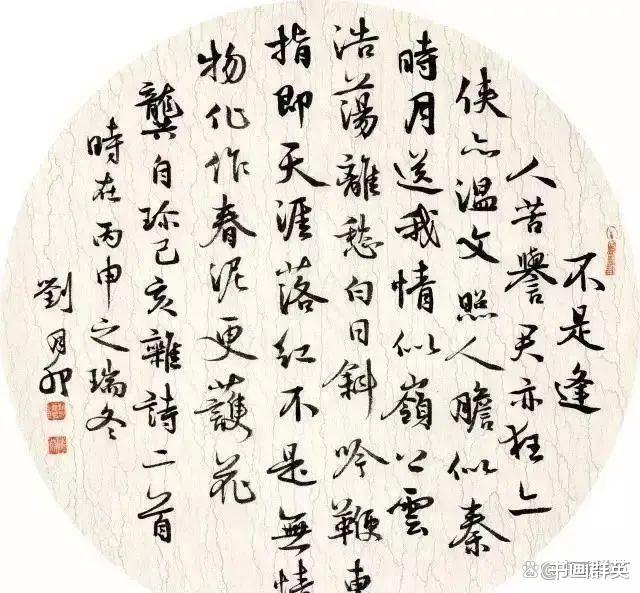 不是逢
人苦譽君亦狂亦
俠亦溫文照人膽似秦
時月送我情似嶺上雲
浩蕩離愁白日斜吟鞭東
指即天涯落紅不是無情
物化作春泥更護花
龔自珍己亥雜詩二首
時在丙申之瑞冬
劉月卯
书画群英